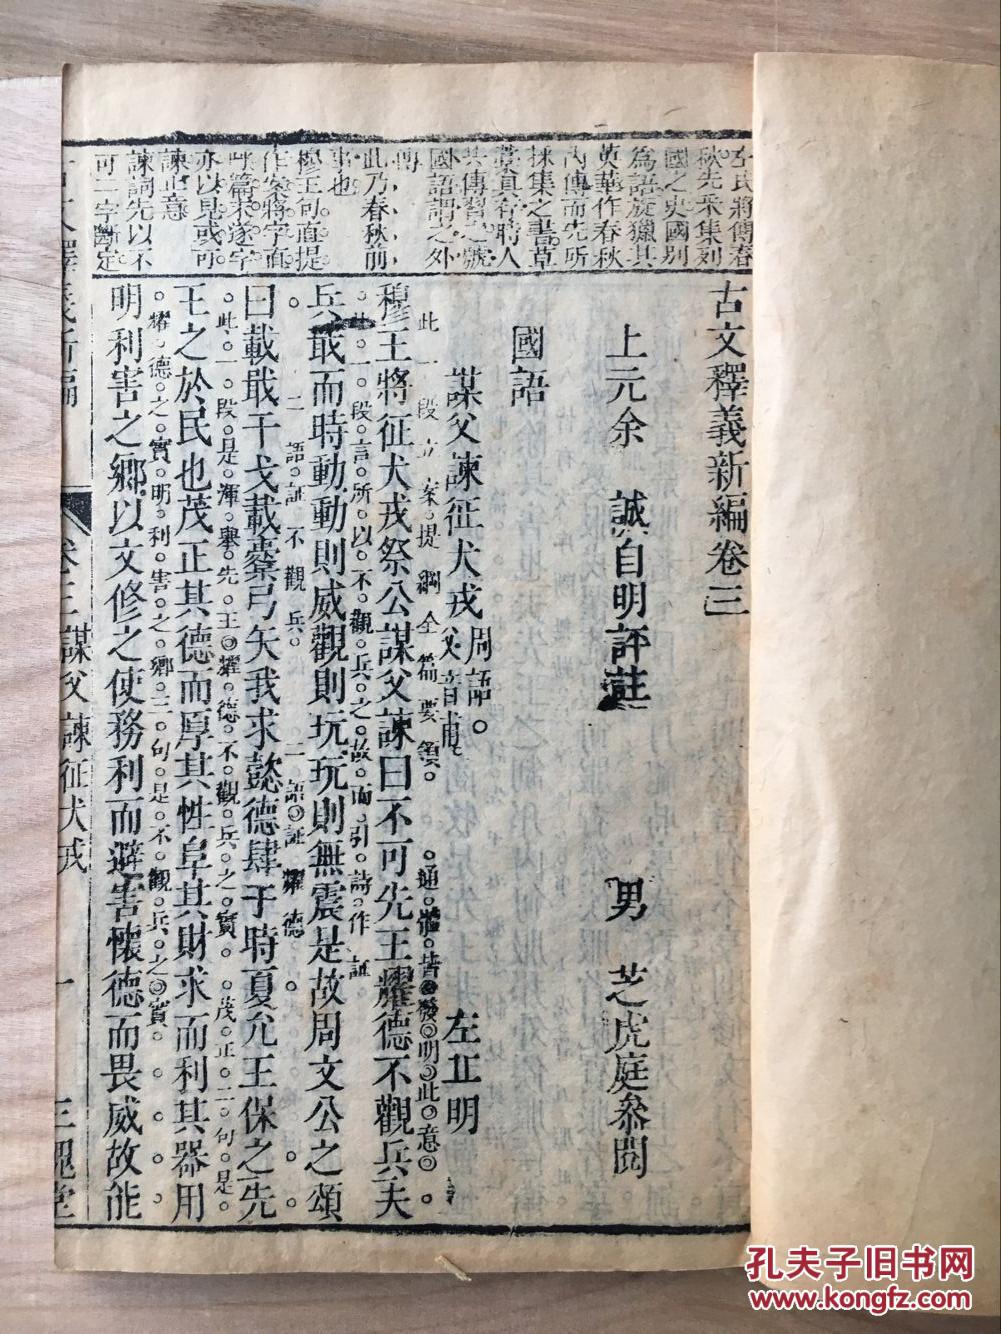 左氏將傳春
秋先采集列
國之史國別
為語旋獵其
英華作春秋
內傳而先所
採集之書草
藁具存時人
共傳習之號
國語謂之外
傳
此乃春秋前
事也
穆王句直提
作案將字直
呼篇末遂字
亦以見或可
諫止意
諫詞先以不
可二字斷定
古文釋義新編卷三
上元余 誠自明評註 男 芝虎庭參閱
國語
謀父諫征犬戎 周語。父音甫 左丘明
此一段立案提綱全篇要領。 通體皆發明此意
穆王將征犬戎祭公謀父諫曰不可先王耀德不觀兵夫
此一段言所以不觀兵之故而引詩作証
兵戢而時動動則威觀則玩玩則無震是故周文公之頌
二語証不觀兵。 二語証耀德
曰載戢干戈載櫜弓矢我求懿德肆于時夏允王保之先
此一段是渾舉先王耀德不觀兵之實。茂正二句是
王之於民也茂正其德而厚其性阜其財求而利其器用
耀德之實明利害之鄉三句是不觀兵之實
明利害之鄉以文修之使務利而避害懷德而畏威故能
古文釋義新編 卷三 謀父諫征犬戎 一 三槐堂
孔夫子旧书网
www.kongfz.com